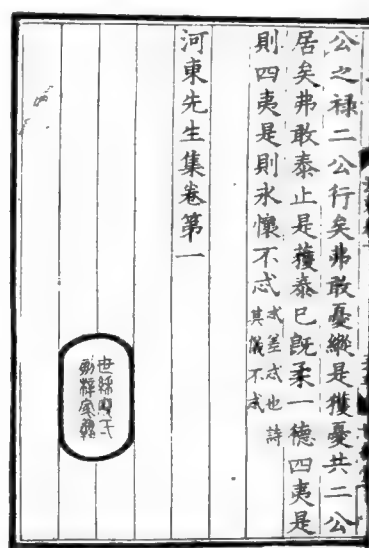 公之禄二公行矣弗敢憂縱是獲憂共二公
居矣弗敢泰止是獲泰已既柔一德四夷是
則四夷是則永懷不忒
忒差忒也詩
其儀不忒
河東先生集卷第一
世綵廖氏
刻梓家塾